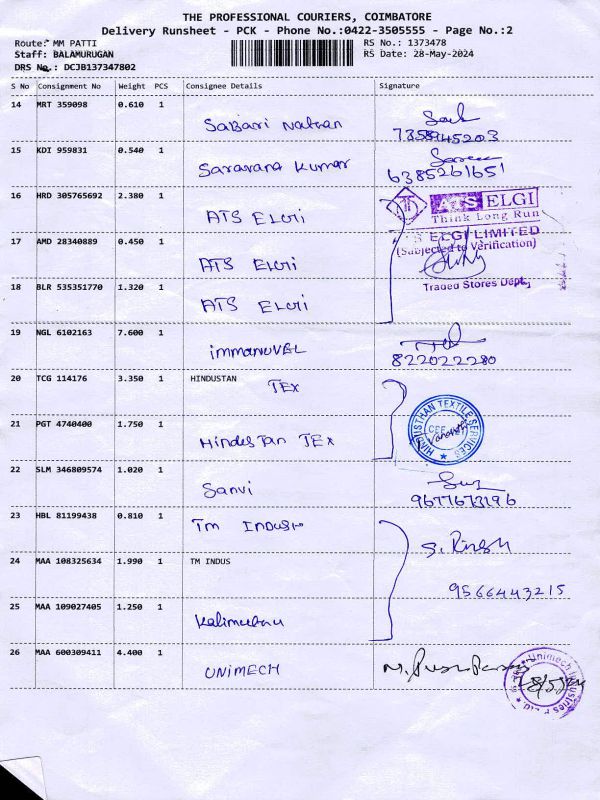 THE PROFESSIONAL COURIERS, COIMBATORE
Delivery Runsheet - PCK - Phone No.:0422-3505555 - Page No.:2
Route: MM PATTI
Staff: BALAMURUGAN
DRS No.: DCJB137347802
RS No.: 1373478
RS Date: 28-May-2024
S No Consignment No Weight PCS Consignee Details Signature
14 MRT 359098 0.610 1 Sabari Nathan
15 KDI 959831 0.540 1 Saravana Kumar
6385261651
16 HRD 305765692 2.380 1 ATS ELGI
ATS ELGI
Think Long Run
ELGI LIMITED
(Subjected to Verification)
17 AMD 28340889 0.450 1 ATS ELGI
18 BLR 535351770 1.320 1 ATS ELGI
Traded Stores Dept.
19 NGL 6102163 7.600 1 immanuvel
8220222280
20 TCG 114176 3.350 1 HINDUSTAN TEX
21 PGT 4740400 1.750 1 Hindustan TEX
HINDUSTHAN TEXTILE SERVICES
22 SLM 346809574 1.020 1 Sanvi
9677673196
23 HBL 81199438 0.810 1 Tm Indust
24 MAA 108325634 1.990 1 TM INDUS
9566443215
25 MAA 109027405 1.250 1
26 MAA 600309411 4.400 1 UNIMECH
Unimech Industries